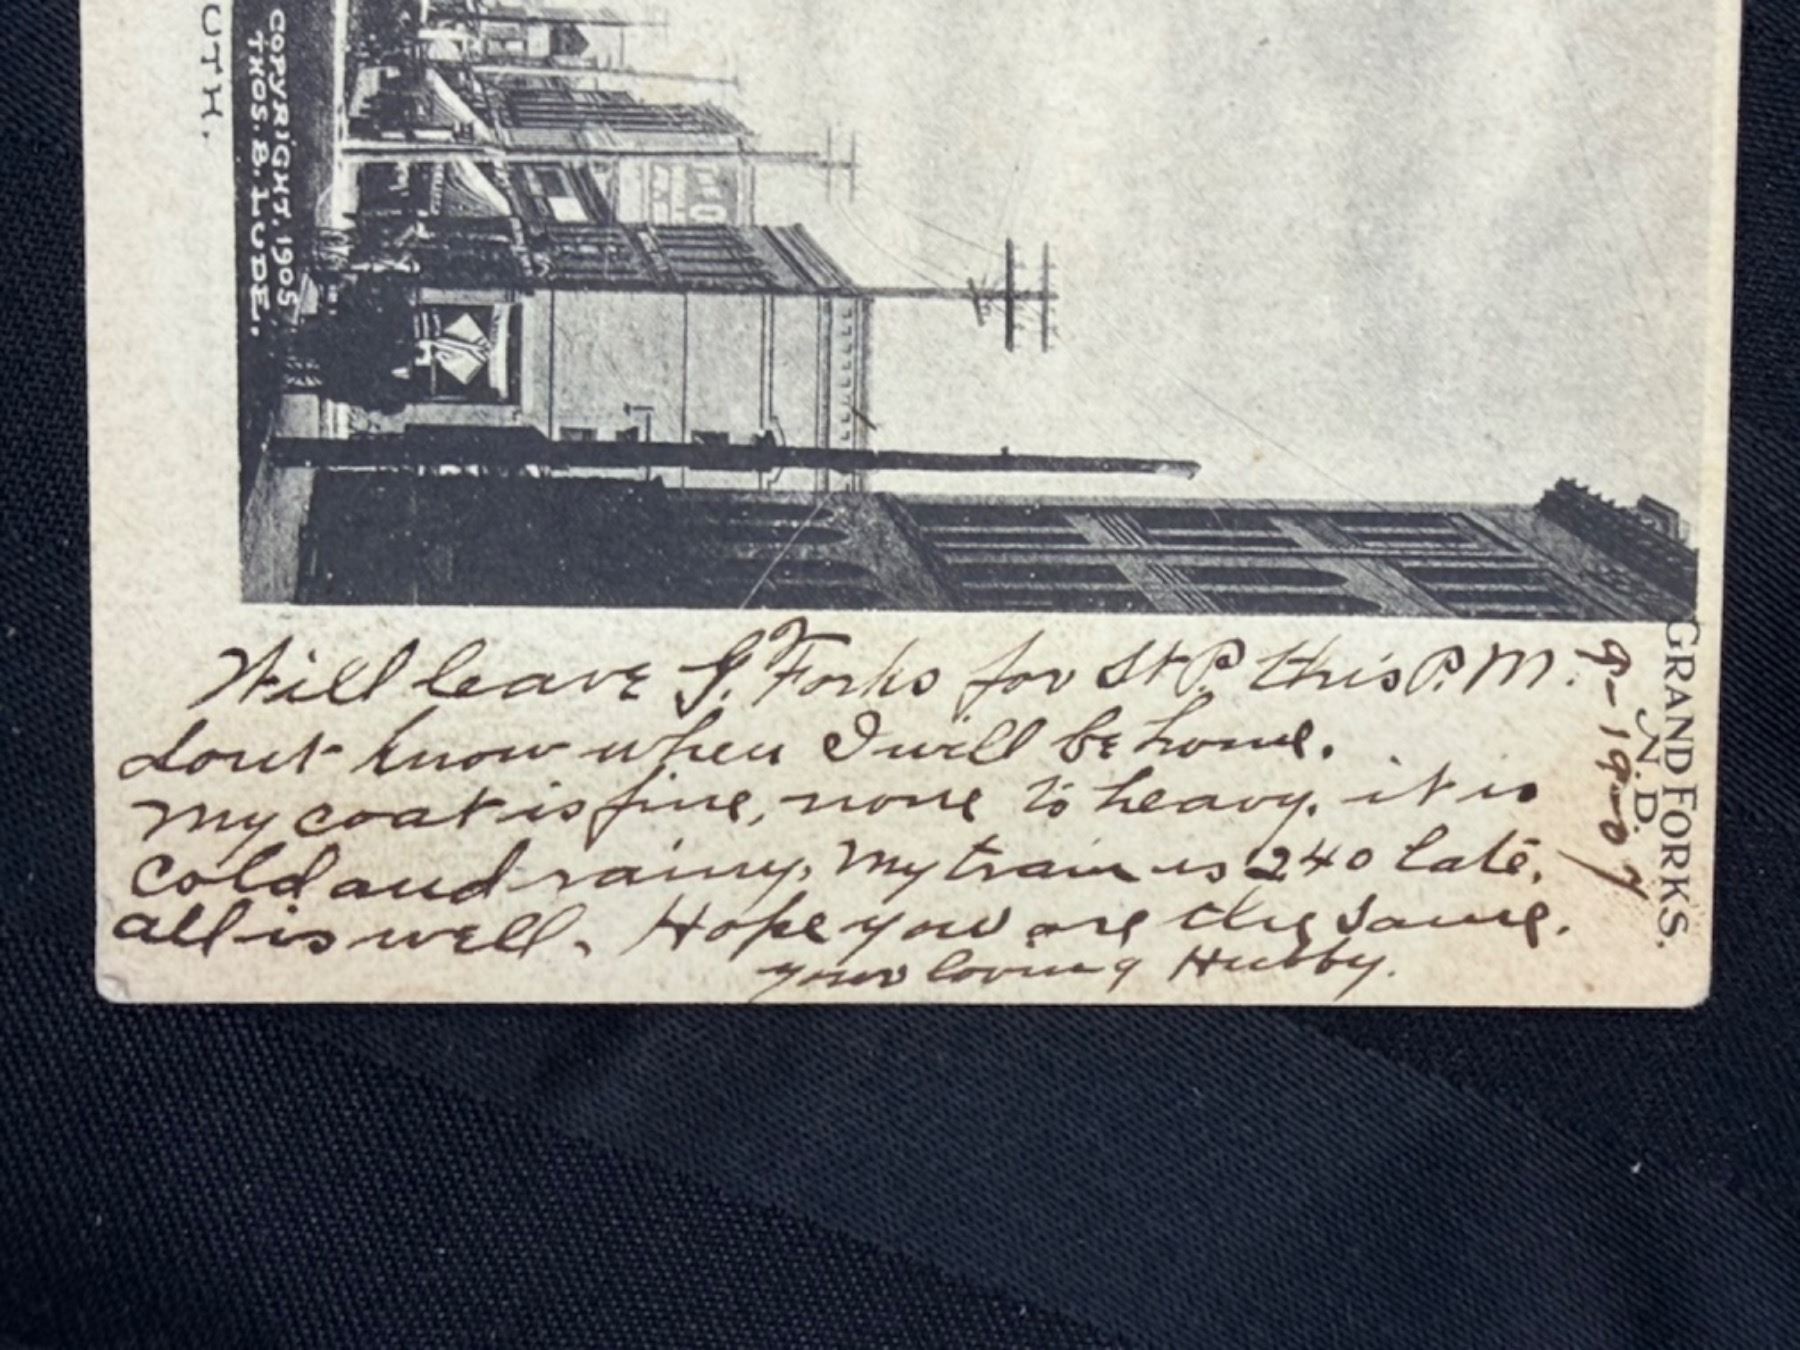 UTH.
COPYRIGHT, 1905
THOS. B. LUDE.
GRAND FORKS.
N. D.
9-19-07
Will leave G. Forks for St P. this P.M.
dont know when I will be home.
My coat is fine, none to heavy. it is
cold and rainy. My train is 240 late.
all is well. Hope you are the same.
your loving Hubby.